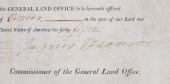 the GENERAL LAND OFFICE to be hereunto affixed.
day of October in the year of our Lord one
United States of America the forty fifth
James Monroe
Commissioner of the General Land Office.